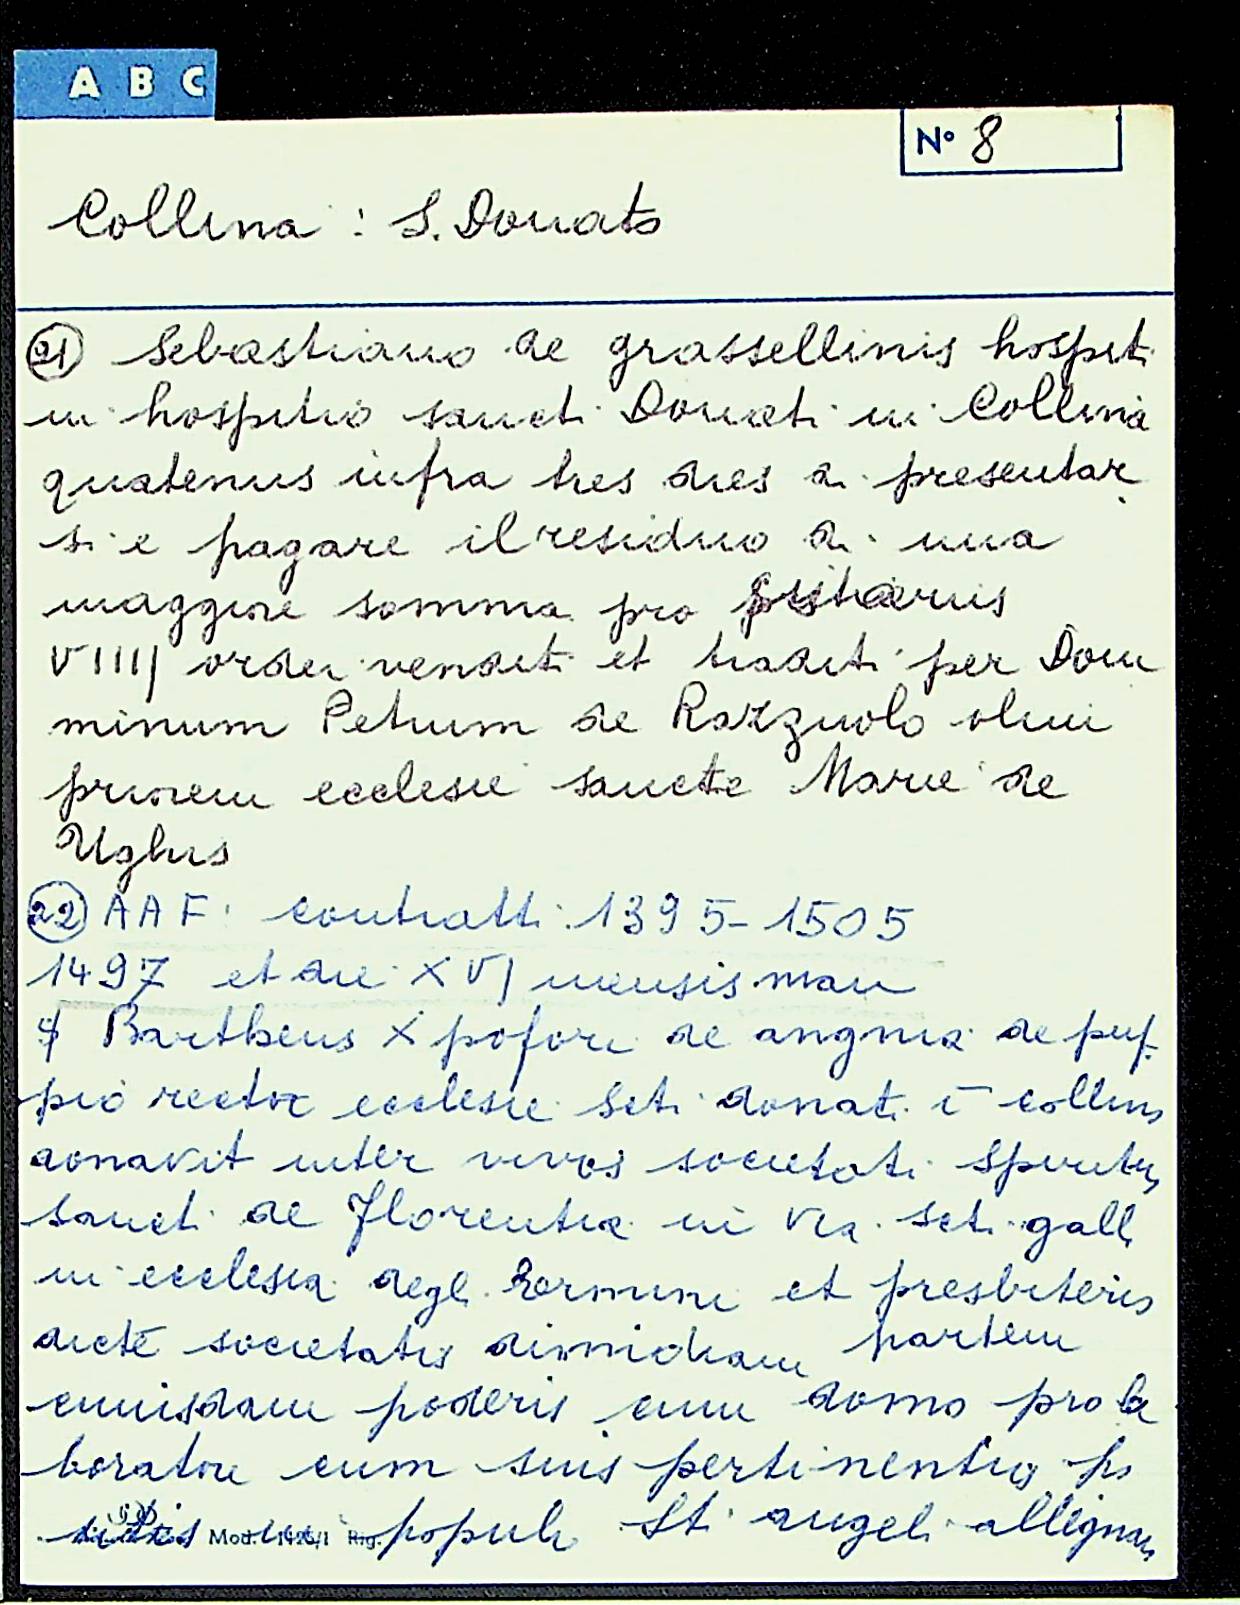 A B C
N° 8
Collina : S. Donato
21 Sebastiano de grassellinis hospiti
in hospitio sancti Donati in Collina
quatenus infra tres dies di presentar
si e pagare il residuo di una
maggiore somma pro
VIIII ordei venditi et traditi per Dom
minum Petrum de Razzuolo olim
priorem ecclesie sancte Marie de
Ughis
22 AAF: contratti 1395-1505
1497 et die XVI mensis maii
Bartheus Xpofori de angnia de pup
pio rector ecclesie Scti donati ī collina
donavit inter vivos societati Spiritus
sancti de Florentia in via scti galli
in ecclesia degli Ermini et presbiteris
dicte societatis dimidiam partem
cuiusdam poderis cum domo pro la
boratore cum suis pertinentiis po
sitis in populi Sti angeli allignai
Mod. 1426/1 Rig.